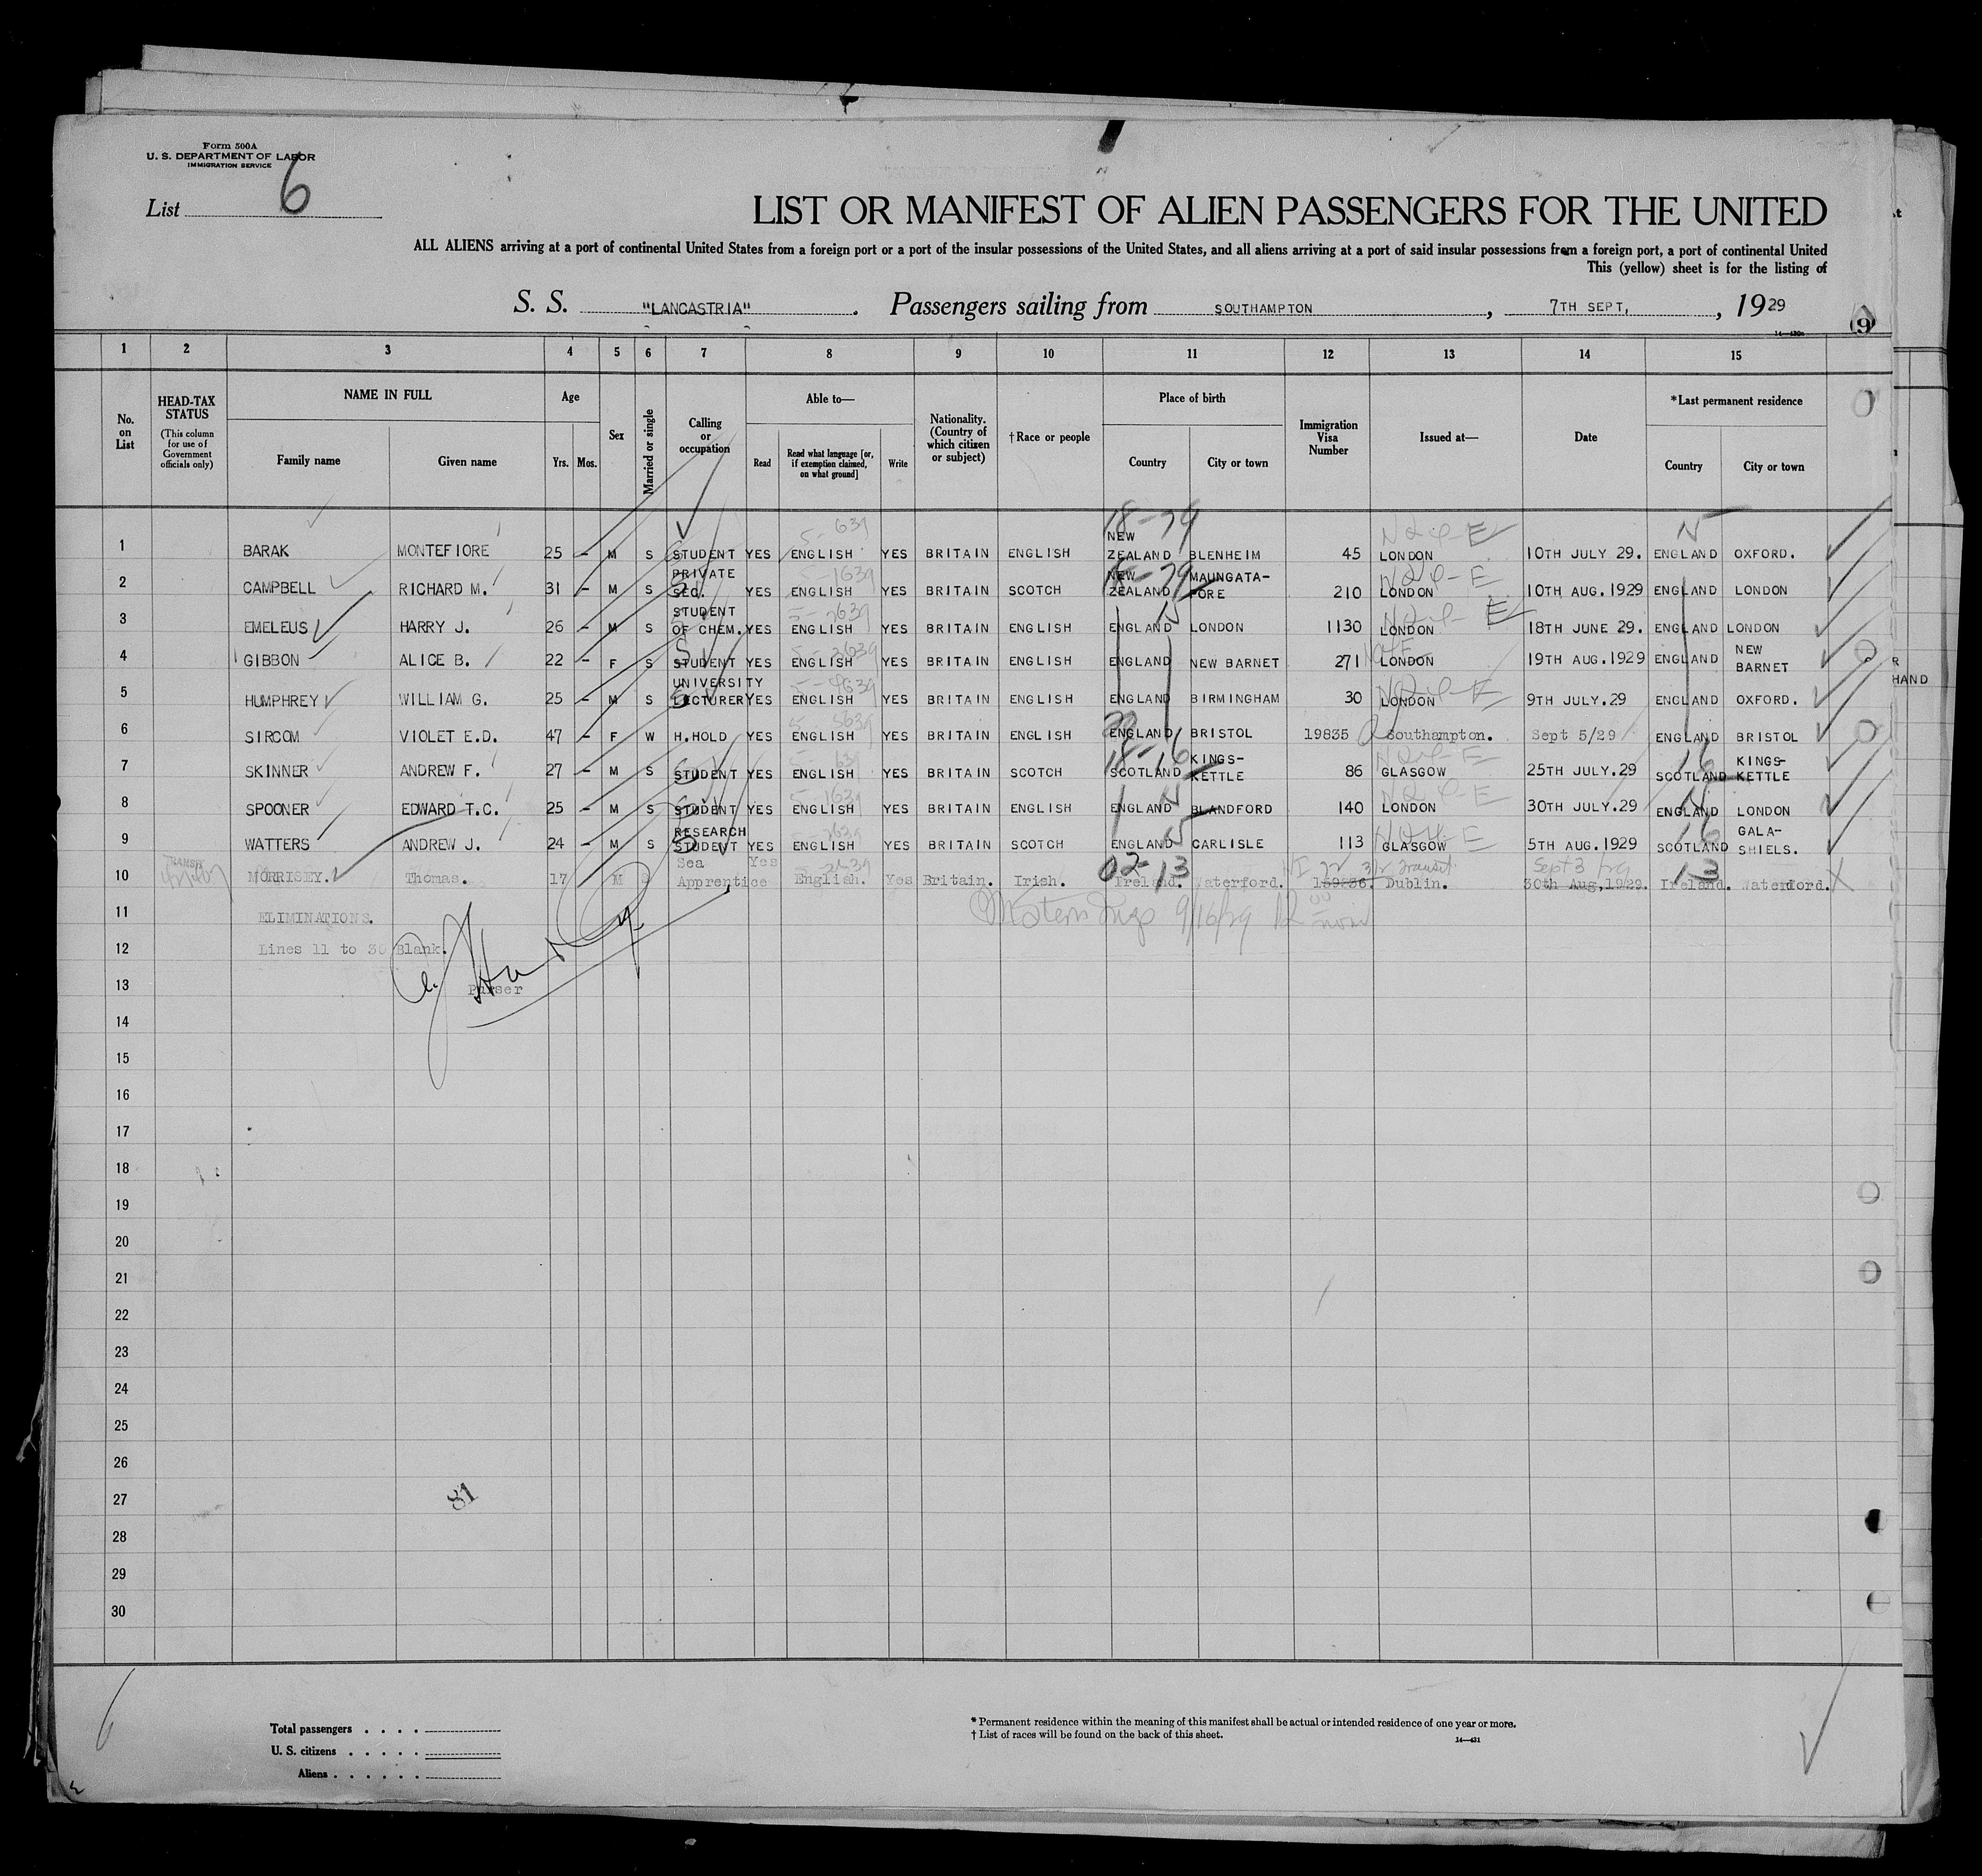 Form 500A
U. S. DEPARTMENT OF LABOR
IMMIGRATION SERVICE
List 6
LIST OR MANIFEST OF ALIEN PASSENGERS FOR THE UNITED
ALL ALIENS arriving at a port of continental United States from a foreign port or a port of the insular possessions of the United States, and all aliens arriving at a port of said insular possessions from a foreign port, a port of continental United
This (yellow) sheet is for the listing of
S. S. "LANCASTRIA". Passengers sailing from SOUTHAMPTON, 7TH SEPT, , 1929
(9)
1 2 3 4 5 6 7 8 9 10 11 12 13 14 15
No. on List
HEAD-TAX STATUS (This column for use of Government officials only)
NAME IN FULL
Family name Given name
Age
Yrs. Mos.
Sex
Married or single
Calling or occupation
Able to—
Read Read what language [or, if exemption claimed, on what ground] Write
Nationality. (Country of which citizen or subject)
†Race or people
Place of birth
Country City or town
Immigration Visa Number
Issued at—
Date
*Last permanent residence
Country City or town
1 BARAK MONTEFIORE 25 – M S STUDENT YES ENGLISH YES BRITAIN ENGLISH NEW ZEALAND BLENHEIM 45 LONDON 10TH JULY 29. ENGLAND OXFORD.
2 CAMPBELL RICHARD M. 31 – M S PRIVATE SEC. YES ENGLISH YES BRITAIN SCOTCH NEW ZEALAND 210 LONDON 10TH AUG.1929 ENGLAND LONDON
3 EMELEUS HARRY J. 26 – M S STUDENT OF CHEM. YES ENGLISH YES BRITAIN ENGLISH ENGLAND LONDON 1130 LONDON 18TH JUNE 29. ENGLAND LONDON
4 GIBBON ALICE B. 22 – F S STUDENT YES ENGLISH YES BRITAIN ENGLISH ENGLAND NEW BARNET 271 LONDON 19TH AUG.1929 ENGLAND NEW BARNET
5 HUMPHREY WILLIAM G. 25 – M S UNIVERSITY LECTURER YES ENGLISH YES BRITAIN ENGLISH ENGLAND BIRMINGHAM 30 LONDON 9TH JULY.29 ENGLAND OXFORD.
6 SIRCOM VIOLET E.D. 47 – F W H.HOLD YES ENGLISH YES BRITAIN ENGLISH ENGLAND BRISTOL 19835 Southampton. Sept 5/29 ENGLAND BRISTOL
7 SKINNER ANDREW F. 27 – M S STUDENT YES ENGLISH YES BRITAIN SCOTCH SCOTLAND KINGS-KETTLE 86 GLASGOW 25TH JULY.29 SCOTLAND KINGS-KETTLE
8 SPOONER EDWARD T.C. 25 – M S STUDENT YES ENGLISH YES BRITAIN ENGLISH ENGLAND BLANDFORD 140 LONDON 30TH JULY.29 ENGLAND LONDON
9 WATTERS ANDREW J. 24 – M S RESEARCH STUDENT YES ENGLISH YES BRITAIN SCOTCH ENGLAND CARLISLE 113 GLASGOW 5TH AUG.1929 SCOTLAND GALA-SHIELS.
10 MORRISEY. Thomas. 17 M S Sea Apprentice Yes English. Yes Britain. Irish. Ireland. Waterford. Dublin. 30th Aug.1929. Ireland. Waterford.
11 ELIMINATIONS.
12 Lines 11 to 30 Blank.
13 Purser
14
15
16
17
18
19
20
21
22
23
24
25
26
27
81
28
29
30
Total passengers
U. S. citizens
Aliens
* Permanent residence within the meaning of this manifest shall be actual or intended residence of one year or more.
† List of races will be found on the back of this sheet.
14—431
HAND